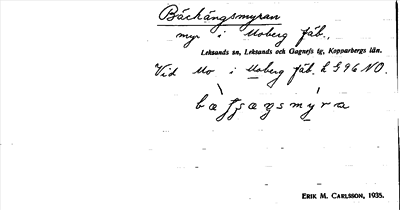 Bäckängsmyran
myr i Moberg fäb.,
Leksands sn, Leksands och Gagnefs tg, Kopparbergs län.
Vid Mo i Moberg fäb. L G96 NO.
ERIK M. CARLSSON, 1935.